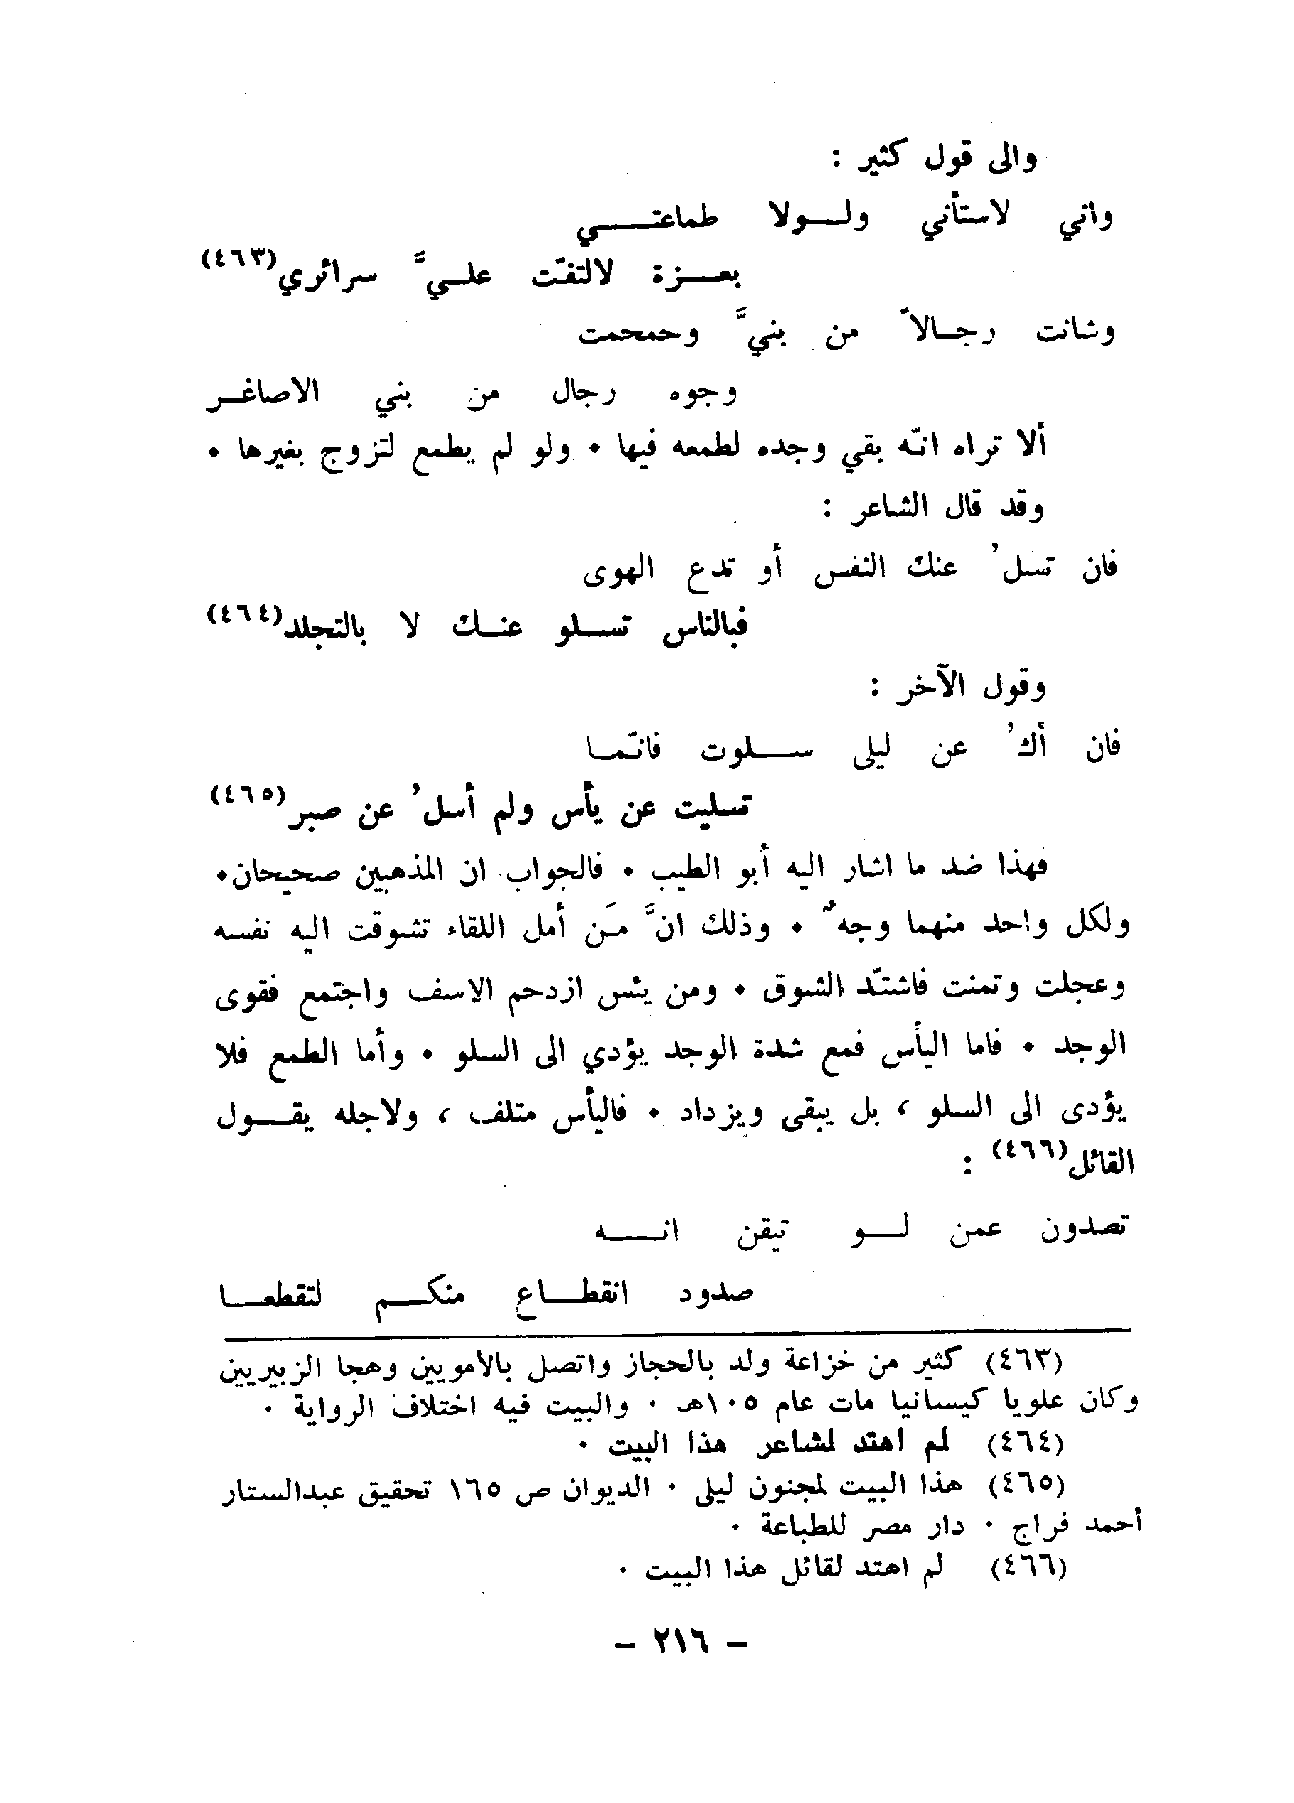 والى قول كثير :
واني لاستأني ولولا طماعتي
بعزة لالتفّت عليَّ سرائري(٤٦٣)
وشانت رجالاً من بنيَّ وحمحمت
وجوه رجال من بني الاصاغر
ألا تراه انّه بقي وجده لطمعه فيها ٠ ولو لم يطمع لتزوج بغيرها ٠
وقد قال الشاعر :
فان تسلُ عنك النفس أو تدع الهوى
فبالناس تسلو عنك لا بالتجلد(٤٦٤)
وقول الآخر :
فان أكُ عن ليلى سلوت فانّما
تسليت عن يأس ولم أسلُ عن صبر(٤٦٥)
فهذا ضد ما اشار اليه أبو الطيب ٠ فالجواب ان المذهبين صحيحان٠
ولكل واحد منهما وجهٌ ٠ وذلك انَّ مَن أمل اللقاء تشوقت اليه نفسه
وعجلت وتمنت فاشتدّ الشوق ٠ ومن يئس ازدحم الاسف واجتمع فقوى
الوجد ٠ فاما اليأس فمع شدة الوجد يؤدي الى السلو ٠ وأما الطمع فلا
يؤدى الى السلو ، بل يبقى ويزداد ٠ فاليأس متلف ، ولاجله يقول
القائل(٤٦٦) :
تصدون عمن لو تيقن انه
صدود انقطاع منكم لتقطعا
(٤٦٣) كثير من خزاعة ولد بالحجاز واتصل بالامويين وهجا الزبيريين
وكان علويا كيسانيا مات عام ١٠٥هـ ٠ والبيت فيه اختلاف الرواية ٠
(٤٦٤) لم اهتد لشاعر هذا البيت ٠
(٤٦٥) هذا البيت لمجنون ليلى ٠ الديوان ص ١٦٥ تحقيق عبدالستار
أحمد فراج ٠ دار مصر للطباعة ٠
(٤٦٦) لم اهتد لقائل هذا البيت ٠
– ٢١٦ –